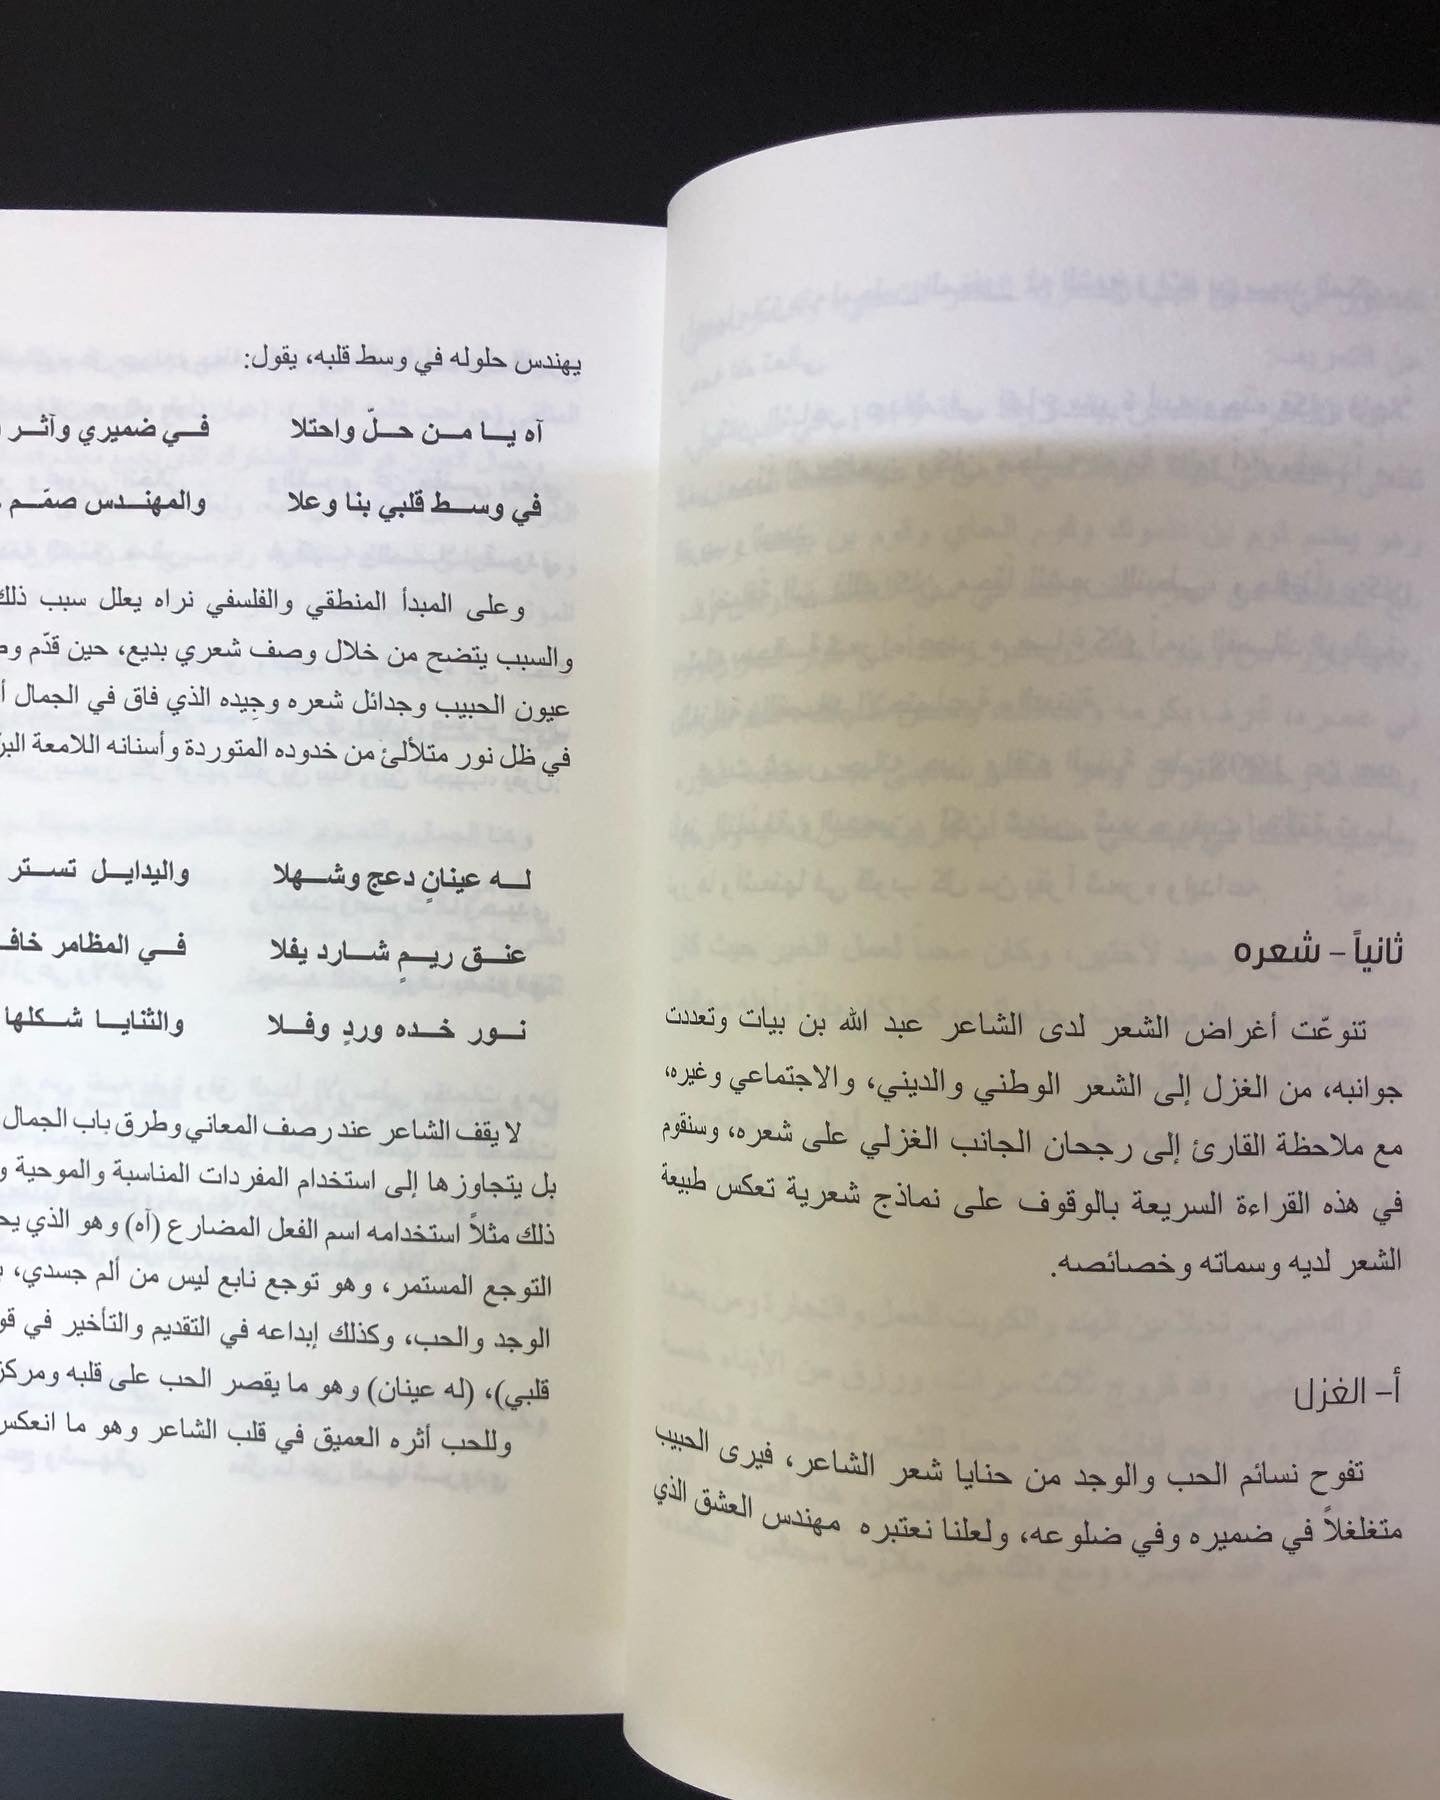 ثانياً – شعره
تنوعّت أغراض الشعر لدى الشاعر عبد الله بن بيات وتعددت
جوانبه، من الغزل إلى الشعر الوطني والديني، والاجتماعي وغيره،
مع ملاحظة القارئ إلى رجحان الجانب الغزلي على شعره، وسنقوم
في هذه القراءة السريعة بالوقوف على نماذج شعرية تعكس طبيعة
الشعر لديه وسماته وخصائصه.
أ– الغزل
تفوح نسائم الحب والوجد من حنايا شعر الشاعر، فيرى الحبيب
متغلغلاً في ضميره وفي ضلوعه، ولعلنا نعتبره مهندس العشق الذي
يهندس حلوله في وسط قلبه، يقول:
آه يا من حلّ واحتلا في ضميري وآثر
في وسط قلبي بنا وعلا والمهندس صمّم
وعلى المبدأ المنطقي والفلسفي نراه يعلل سبب ذلك
والسبب يتضح من خلال وصف شعري بديع، حين قدّم
عيون الحبيب وجدائل شعره وجِيده الذي فاق في الجمال
في ظل نور متلألئ من خدوده المتوردة وأسنانه اللامعة
له عينانٍ دعج وشهلا واليدايل تستر
عنق ريمٍ شارد يفلا في المظامر
نور خده وردٍ وفلا والثنايا شكلها
لا يقف الشاعر عند رصف المعاني وطرق باب الجمال
بل يتجاوزها إلى استخدام المفردات المناسبة والموحية
ذلك مثلاً استخدامه اسم الفعل المضارع (آه) وهو الذي
التوجع المستمر، وهو توجع نابع ليس من ألم جسدي،
الوجد والحب، وكذلك إبداعه في التقديم والتأخير في
قلبي)، (له عينان) وهو ما يقصر الحب على قلبه
وللحب أثره العميق في قلب الشاعر وهو ما